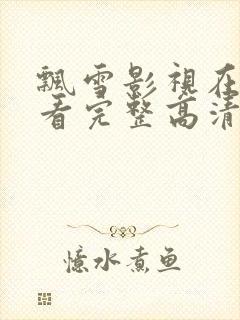 飘雪影视在
看完整高清
忆水煮鱼